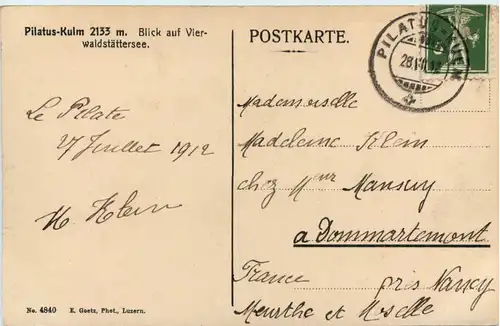 Pilatus-Kulm 2133 m. Blick auf Vier-
waldstättersee.
Le Pilate
27 Juillet 1912
H. Klein
No. 4840 E. Goetz, Phot., Luzern.
POSTKARTE.
PILATUS-KULM
28.VII.12
Mademoiselle
Madeleine Klein
chez Meur Mansuy
à Dommartemont
France près Nancy
Meurthe et Moselle